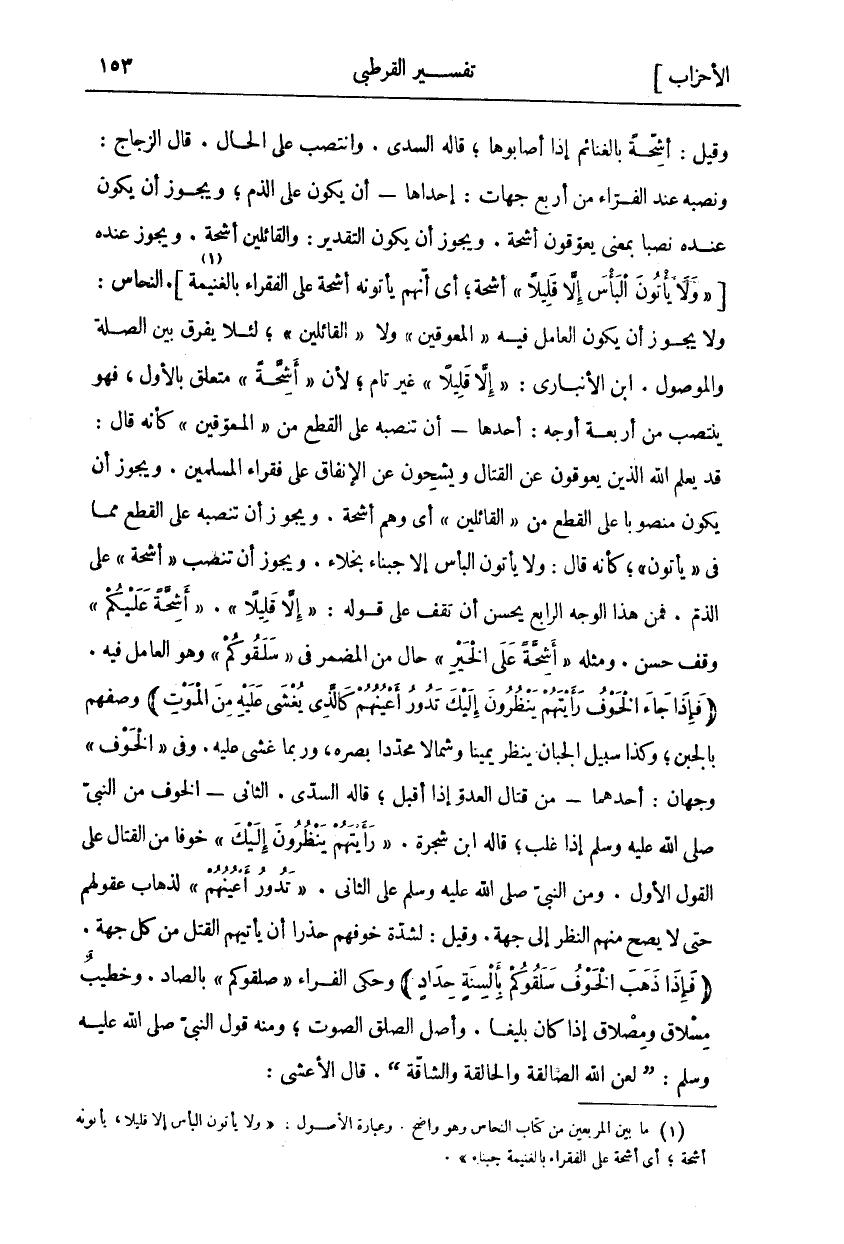 الأحزاب ] تفسير القرطبى ١٥٣
وقيل : أشِحّةً بالغنائم إذا أصابوها ؛ قاله السدى . وانتصب على الحال . قال الزجاج :
ونصبه عند الفرّاء من أربع جهات : إحداها — أن يكون على الذم ؛ ويجوز أن يكون
عنده نصبا بمعنى يعوّقون أشحة . ويجوز أن يكون التقدير : والقائلين أشحة . ويجوز عنده
[ « وَلَا يَأْتُونَ الْبَأْسَ إِلَّا قَلِيلًا » أشحة ؛ أى أنّهم يأتونه أشحة على الفقراء بالغنيمة (١) ] . النحاس :
ولا يجوز أن يكون العامل فيه « المعوقين » ولا « القائلين » ؛ لئلا يفرق بين الصلة
والموصول . ابن الأنبارى : « إِلَّا قَلِيلًا » غير تام ؛ لأن « أَشِحَّةً » متعلق بالأول ، فهو
ينتصب من أربعة أوجه : أحدها — أن تنصبه على القطع من « المعوّقين » كأنه قال :
قد يعلم الله الذين يعوقون عن القتال ويشحون عن الإنفاق على فقراء المسلمين . ويجوز أن
يكون منصوبا على القطع من « القائلين » أى وهم أشحة . ويجوز أن تنصبه على القطع مما
فى « يأتون » ؛ كأنه قال : ولا يأتون البأس إلا جبناء بخلاء . ويجوز أن تنصب « أشحة » على
الذمّ . فمن هذا الوجه الرابع يحسن أن تقف على قوله : « إِلَّا قَلِيلًا » . « أَشِحَّةً عَلَيْكُمْ »
وقف حسن . ومثله « أَشِحَّةً عَلَى الْخَيْرِ » حال من المضمر فى « سَلَقُوكُمْ » وهو العامل فيه .
﴿ فَإِذَا جَاءَ الْخَوْفُ رَأَيْتَهُمْ يَنْظُرُونَ إِلَيْكَ تَدُورُ أَعْيُنُهُمْ كَالَّذِى يُغْشَى عَلَيْهِ مِنَ الْمَوْتِ ﴾ وصفهم
بالجبن ؛ وكذا سبيل الجبان ينظر يمينا وشمالا محدّدا بصره ، وربما غشى عليه . وفى « الْخَوْف »
وجهان : أحدهما — من قتال العدوّ إذا أقبل ؛ قاله السدّى . الثانى — الخوف من النبىّ
صلى الله عليه وسلم إذا غلب ؛ قاله ابن شجرة . « رَأَيْتَهُمْ يَنْظُرُونَ إِلَيْكَ » خوفا من القتال على
القول الأول . ومن النبىّ صلى الله عليه وسلم على الثانى . « تَدُورُ أَعْيُنُهُمْ » لذهاب عقولهم
حتى لا يصح منهم النظر إلى جهة . وقيل : لشدّة خوفهم حذرا أن يأتيهم القتل من كل جهة .
﴿ فَإِذَا ذَهَبَ الْخَوْفُ سَلَقُوكُمْ بِأَلْسِنَةٍ حِدَادٍ ﴾ وحكى الفراء « صلقوكم » بالصاد . وخطيبٌ
مِسْلاق ومِصْلاق إذا كان بليغا . وأصل الصلق الصوت ؛ ومنه قول النبىّ صلى الله عليه
وسلم : ” لعن الله الصالقة والحالقة والشاقّة “ . قال الأعشى :
(١) ما بين المربعين من كتاب النحاس وهو واضح . وعبارة الأصول : « ولا يأتون البأس إلا قليلا ، يأتونه
أشحة ؛ أى أشحة على الفقراء بالغنيمة جبناء » .